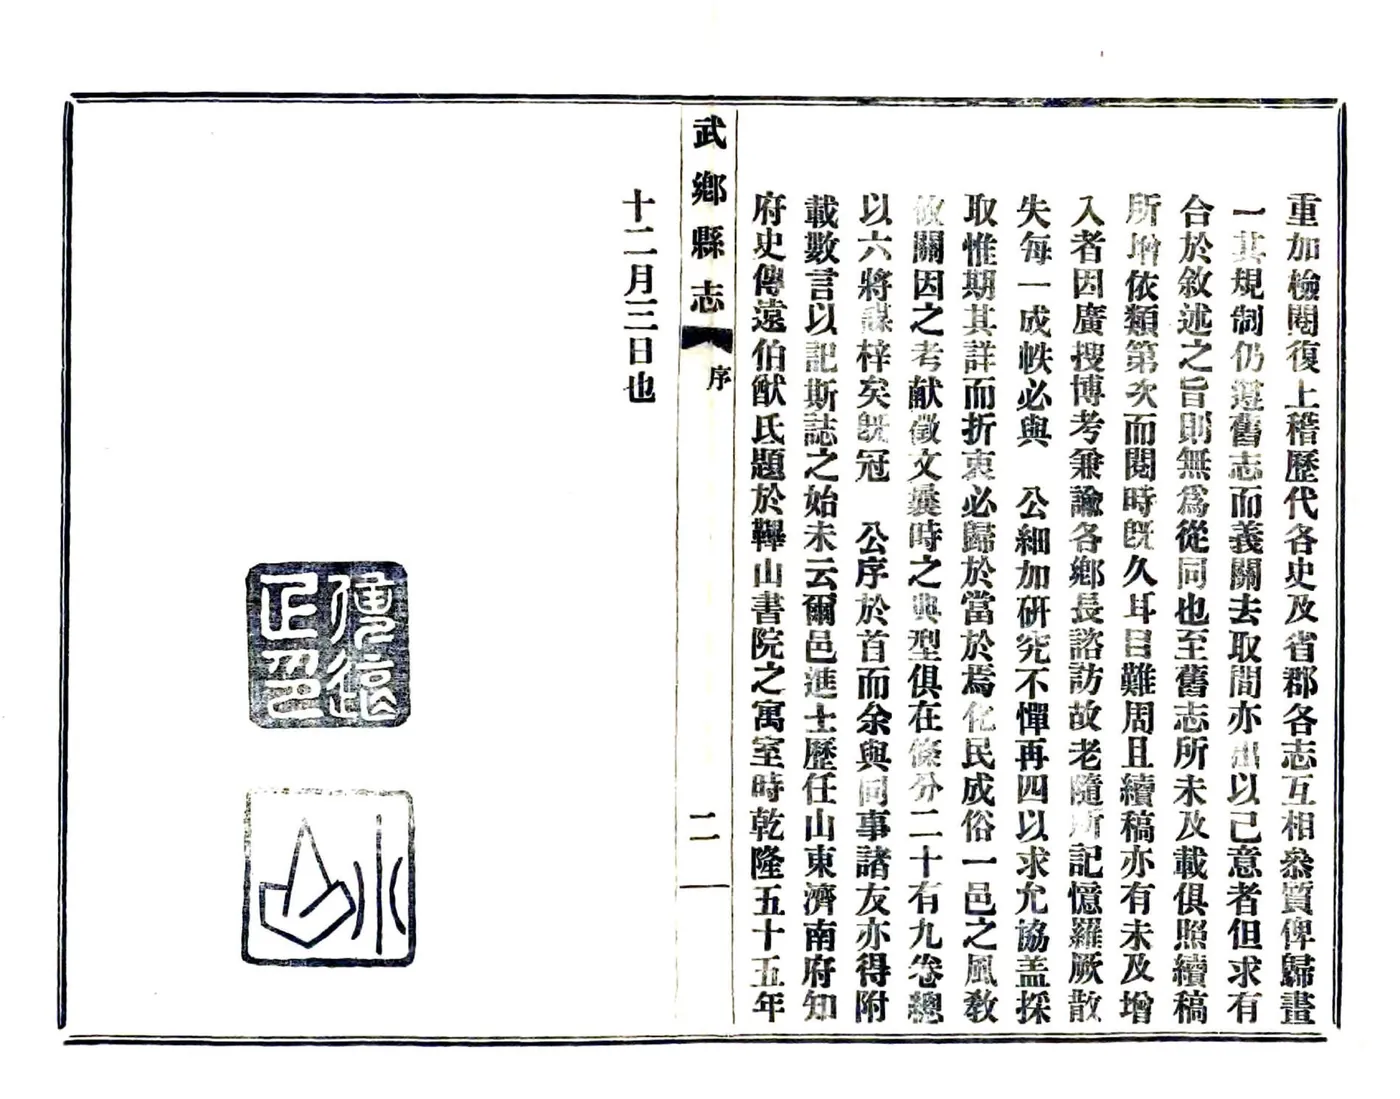 重加檢閱復上稽歷代各史及省郡各志互相叅質俾歸畫
一其規制仍遵舊志而義關去取間亦出以己意者但求有
合於敘述之旨則無爲從同也至舊志所未及載俱照續稿
所增依類第次而閱時旣久耳目難周且續稿亦有未及增
入者因廣搜博考兼諭各鄉長諮訪故老隨所記憶羅厥散
失每一成帙必與 公細加硏究不憚再四以求允協盖採
取惟期其詳而折衷必歸於當於焉化民成俗一邑之風敎
攸關因之考献徵文曩時之典型俱在條分二十有九卷總
以六將謀梓矣旣冠 公序於首而余與同事諸友亦得附
載數言以記斯誌之始末云爾邑進士歷任山東濟南府知
府史傳遠伯猷氏題於鞞山書院之寓室時乾隆五十五年
武鄉縣志
序
二
十二月三日也